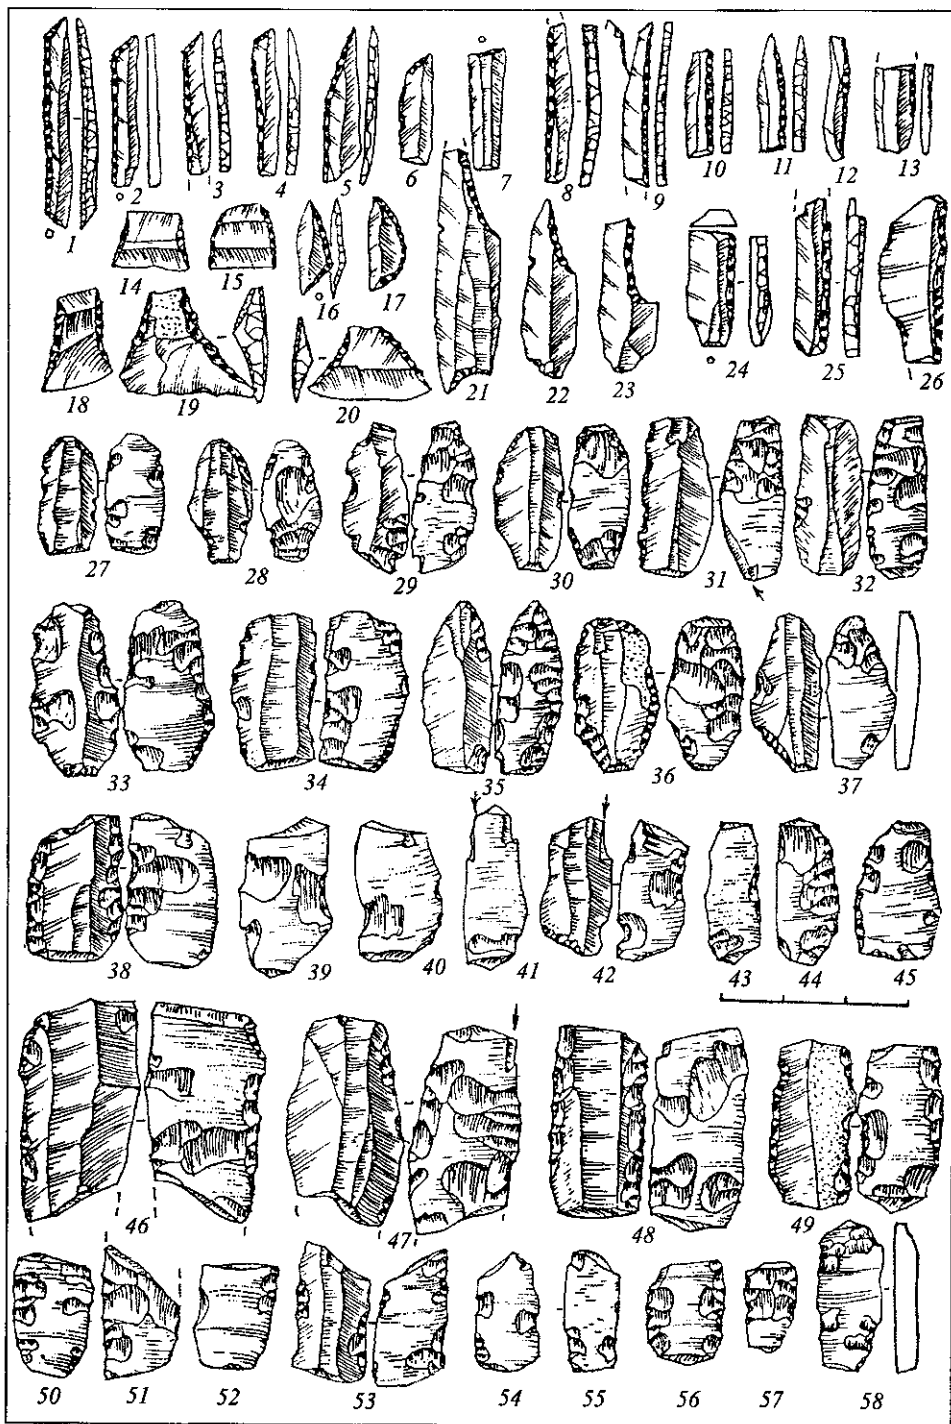 1 2 3 4 5 6 7 8 9 10 11 12 13
14 15 16 17 21 22 23 24 25 26
18 19 20
27 28 29 30 31 32
33 34 35 36 37
38 39 40 41 42 43 44 45
46 47 48 49
50 51 52 53 54 55 56 57 58